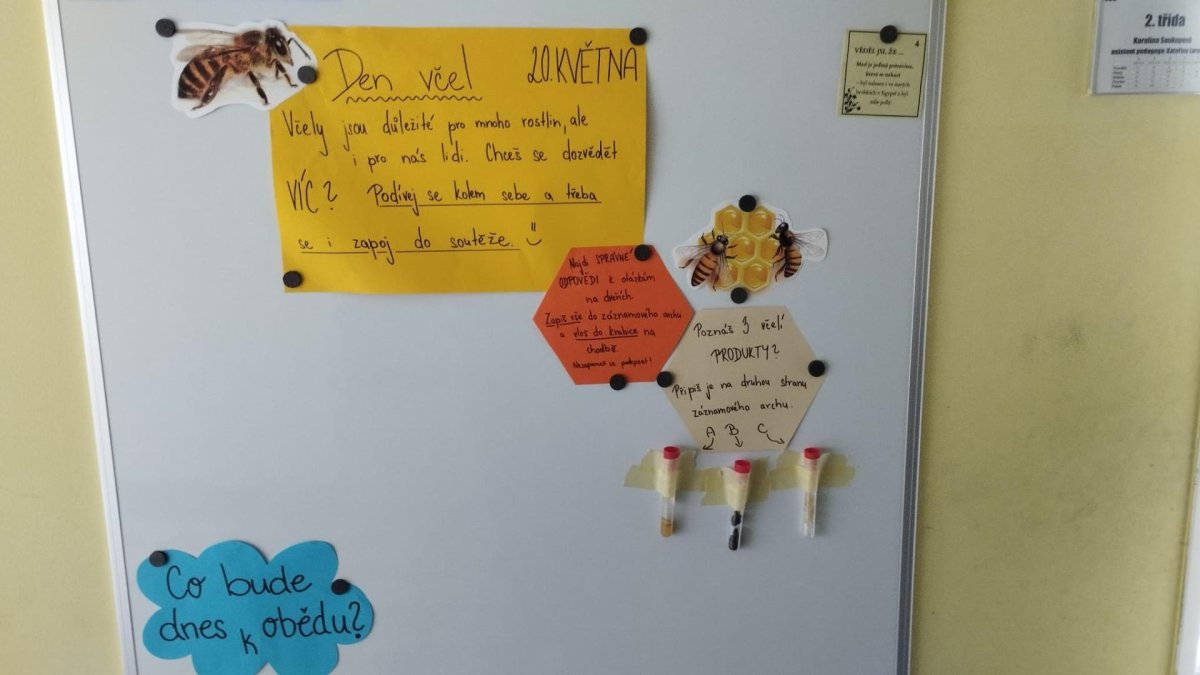 Den včel 20. KVĚTNA
Včely jsou důležité pro mnoho rostlin, ale
i pro nás lidi. Chceš se dozvědět
VÍC? Podívej se kolem sebe a třeba
se i zapoj do soutěže.
Najdi SPRÁVNÉ
ODPOVĚDI k otázkám
na dveřích.
Zapiš vše do záznamového archu
a vlož do krabice na
chodbě.
Nezapomeň se podepsat!
Poznáš 3 včelí
PRODUKTY?
Připiš je na druhou stranu
záznamového archu.
A B C
Co bude
dnes k obědu?
4
VĚDĚL JSI, ŽE ...
Med je jediná potravina,
která se nekazí
- byl nalezen i ve starých
hrobkách v Egyptě a byl
stále jedlý.
2. třída
Karolína Soukupová
asistent pedagoga: Kateřina